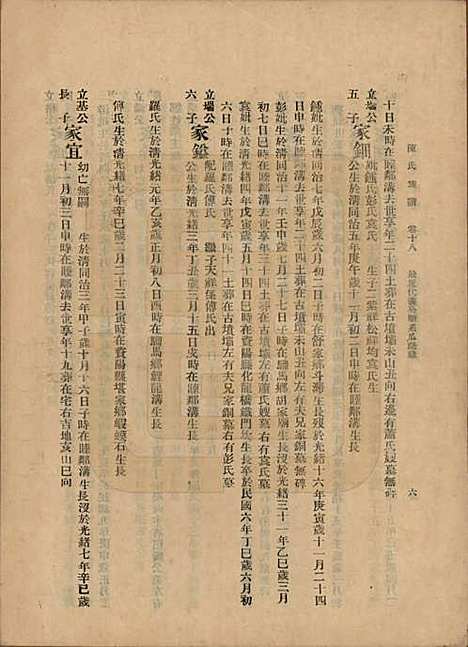 陳氏族譜 卷十八 六
十日未時在睦鄰溝去世享年二十四土葬在古墳壩未山丑向右邊有蕭氏嫂墓無碑
立壎公五子家鈿 妣鍾氏彭氏袁氏 生子二紫祥松祥均袁氏生
公生於清同治五年庚午歲十一月初二日申時在睦鄰溝生長
鍾妣生於清同治七年戊辰歲六月初二日子時在舒家鄉斗溝生長歿於光緒十六年庚寅歲十一月二十四
日申時在睦鄰溝去世享年二十三土葬在古墳壩未山丑向左有夫兄家銅墓無碑
彭妣生於清同治十一年壬申歲七月二十七日子時在駟馬鄉胡家廟生長歿於光緒三十一年乙巳歲三月
初七日巳時在睦鄰溝去世享年三十四土葬在古墳壩左有蕭氏嫂墓右有袁氏墓
袁妣生於清光緒四年戊寅歲五月十四日巳時在資陽縣化龍橋鐵門坎生長卒於民國六年丁巳歲六月初
六日子時在睦鄰溝去世享年四十一土葬在古墳壩左有夫兄家銅墓右有彭氏墓
立壎公六子家鎰 配羅氏傅氏 繼子天祥係傅氏出
公生於清光緒三年丁丑歲三月十五日亥時在睦鄰溝生長
羅氏生於清光緒元年乙亥歲正月初八日酉時在駟馬鄉鯉龍溝生長
傅氏生於清光緒七年辛巳歲二月二十三日寅時在資陽縣堪家鄉蝦蟆石生長
立基公長子家宜 幼亡無嗣 生於清同治三年甲子歲十月十六日子時在睦鄰溝生長沒於光緒七年辛巳歲
十二月初三日申時在睦鄰溝去世享年十九葬在宅右吉地亥山巳向